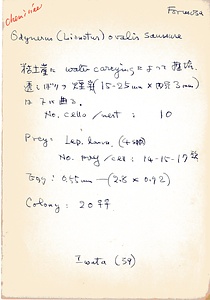 Formosa
Odynerus (Lionotus) ovalis Saussure
粘土産に water carrying によって
透しぼり 煙突 (15-25mm × 四分 3mm)
は 下に曲る.
No. cells / nest : 10
Prey: Lep. larva. (4 spp)
No. prey / cell : 14-15-17 頭
Egg: 0.55mm — (2.8 × 0.92)
Colony: 20 
Iwata (39)